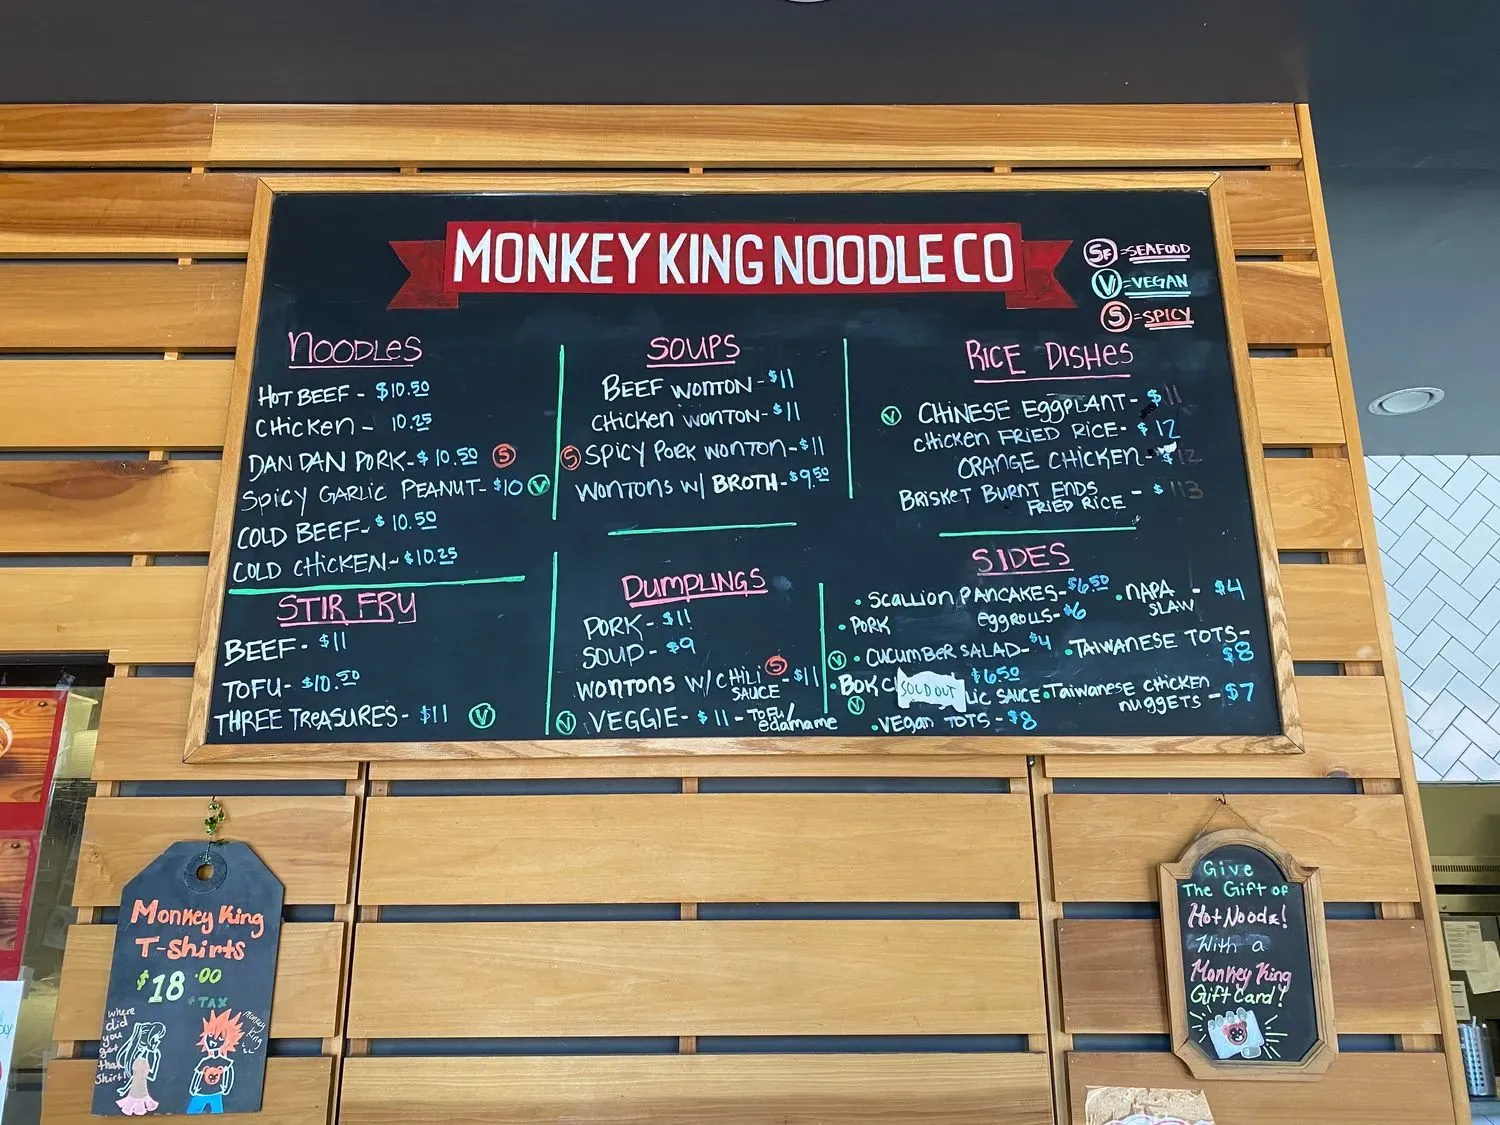 MONKEY KING NOODLE CO
Sf = SEAFOOD
V = VEGAN
S = SPICY
NOODLES
HOT BEEF - $10.50
CHICKEN - 10.25
DAN DAN PORK - $10.50 S
SPICY GARLIC PEANUT - $10 V
COLD BEEF - $10.50
COLD CHICKEN - $10.25
STIR FRY
BEEF - $11
TOFU - $10.50
THREE TREASURES - $11 V
SOUPS
BEEF WONTON - $11
CHICKEN WONTON - $11
S SPICY PORK WONTON - $11
WONTONS W/ BROTH - $9.50
DUMPLINGS
PORK - $11
SOUP - $9
WONTONS W/ CHILI S - $11
SAUCE
V VEGGIE - $11 - TOFU/
edamame
RICE DISHES
V CHINESE EGGPLANT - $11
CHICKEN FRIED RICE - $12
ORANGE CHICKEN - $12
BRISKET BURNT ENDS - $
FRIED RICE
SIDES
• SCALLION PANCAKES - $6.50
• PORK EGGROLLS - $6
V • CUCUMBER SALAD - $4
• BOK C SOLD OUT $6.50
V LIC SAUCE
• VEGAN TOTS - $8
• NAPA - $4
SLAW
• TAIWANESE TOTS -
$8
• Taiwanese CHICKEN
NUGGETS - $7
Monkey King
T-Shirts
$18.00
+ TAX
where
did
you
get
that
Shirt?
Monkey
King
Give
The Gift of
Hot Noodz!
With a
Monkey King
Gift Card!